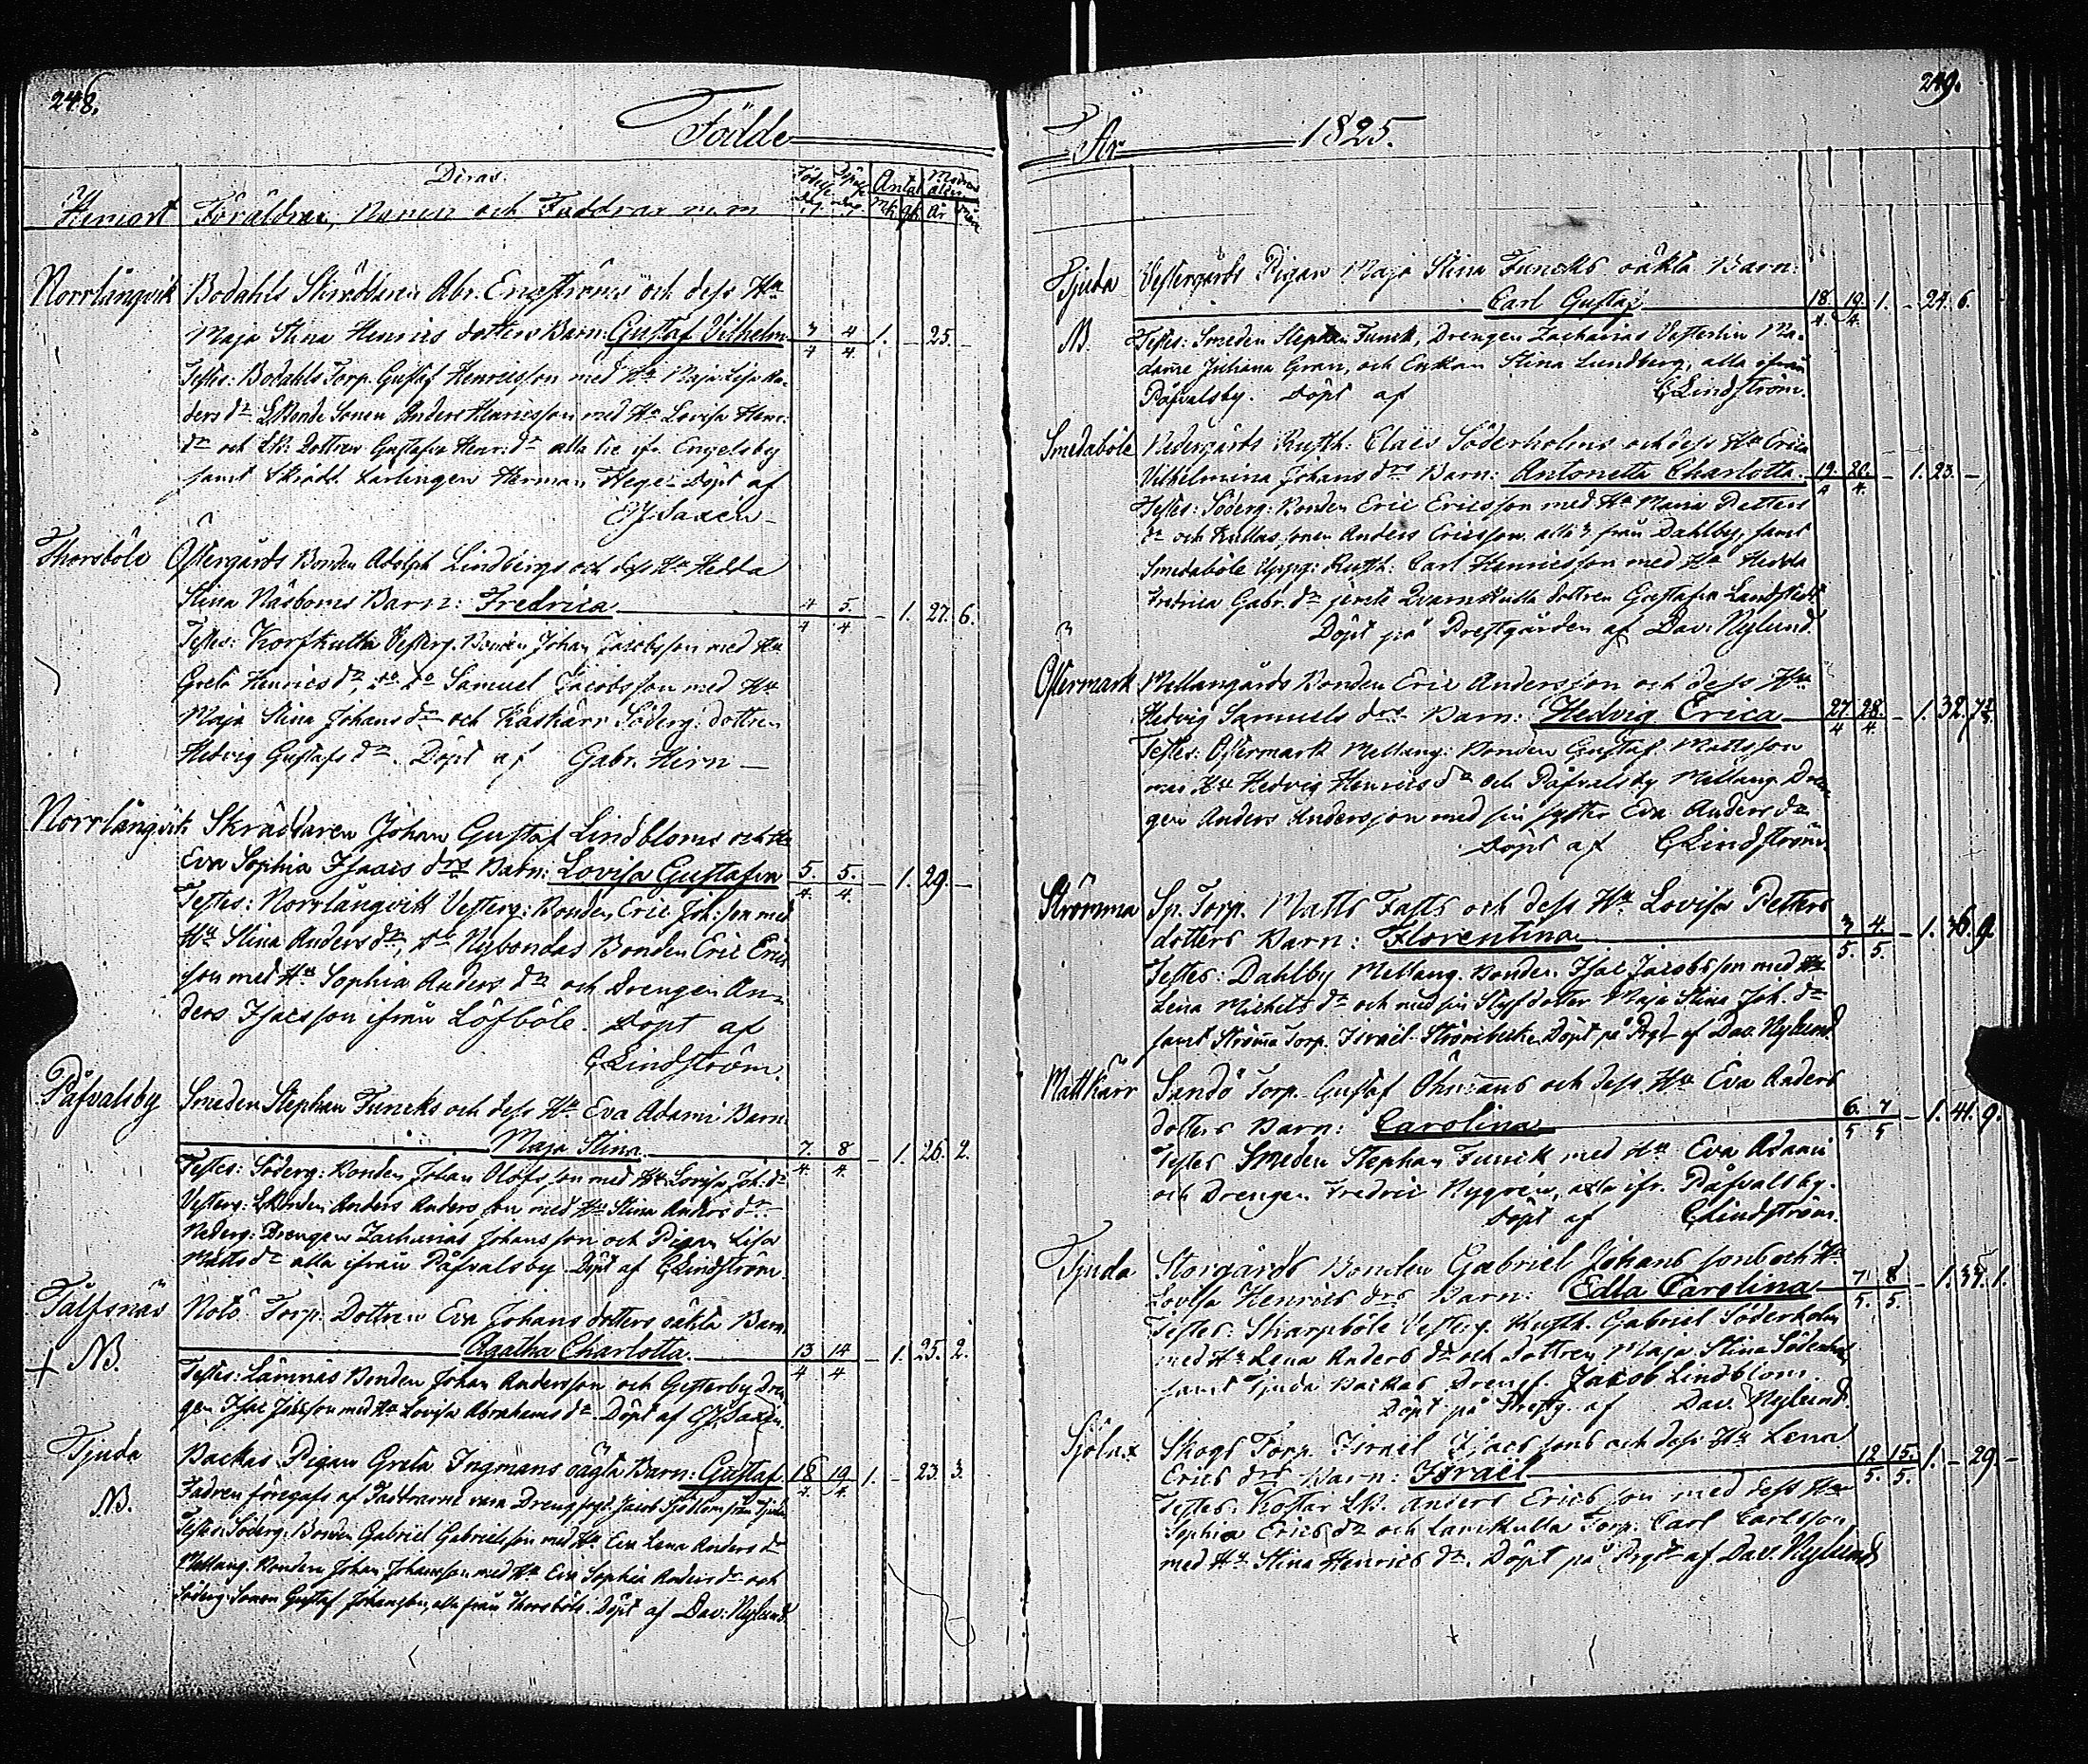 248.
Födde
Deras
Hemort Föräldrar, Namn och Faddrar m.m Födelse Dag Döpelse Dag Antal Mk Qk Modrens ålder År Mån
Norrlångvik Bodahls Skräddaren Abr. Eneströms och dess Hu
Maja Stina Henrics dotters Barn: Gustaf Vilhelm 3/4 4/4 1. - 25. -
Testes: Bodahls Torp. Gustaf Henricsson med Hu Maja Lisa An-
ders dr. Bonde Sonen Anders Henricsson med Hu Lovisa Henr:
dr och Dottren Gustafva Henr: dr alla ifr. Engelsby
samt Skrädd. Lärlingen Herman Hege. Döpt af
Saxén
Thorsböle Östergårds Bonden Adolph Lindbergs och dess Hu Hedda
Stina Näsboms Barn: Fredrica 4/4 5/4 - 1. 27. 6.
Testes: Korskulla Vesterg. Bonden Johan Jacobsson med Hu
Greta Henrics dr, do do Samuel Jacobsson med Hu
Maja Stina Johans dr och Kaskärr Söderg. dottren
Hedvig Gustafs dr. Döpt af Gabr. Hirn
Norrlångvik Skräddaren Johan Gustaf Lindbloms och Hu
Eva Sophia Isaacs drs Barn: Lovisa Gustafva 5./4. 5./4. - 1. 29. -
Testes: Norrlångvik Vesterg: Bonden Eric Joh: son med
Hu Stina Anders dr, do Nybondas Bonden Eric Erics
son med Hu Sophia Anders dr och Drengen An-
ders Isacsson ifrån Löfböle. Döpt af
C Lindström.
Påfvalsby Smeden Stephan Funcks och dess Hu Eva Adami Barn:
Maja Stina 7./4. 8/4 - 1. 26. 2.
Testes: Söderg: Bonden Johan Olofsson med Hu Lovisa Joh: dr
Vesterg: Bonden Anders Andersson med Hu Stina Anders dr.
Nederg: Drengen Zacharias Johansson och Pigan Lisa
Matts dr alla ifrån Påfvalsby. Döpt af C Lindström.
Tälfsnäs Notö Torp. Dottren Eva Johans dotters oäkta Barn:
+ NB. Agatha Charlotta 13/4 14/4 - 1. 25. 2.
Testes: Lämnäs Bonden Johan Andersson och Gesterby Dren
gen Isac med Hu Lovisa Abrahams dr. Döpt af Saxén.
Tjuda Backas Pigan Greta Ingmans oägta Barn: Gustaf 18/4. 19/4. 1. - 23. 3.
NB. Fadren föregafs af Faddrarne vara Drengen Jacob Sjöblom från Tjuda
Testes: Söderg: Bonden Gabriel Gabrielsson med Hu Eva Lena Anders dr
Mellang. Bonden Johan Johansson med Hu Eva Sophia Anders dr och
Söderg. Sonen Gustaf Johansson, alla från Thorsböle. Döpt af Dav: Nylund.
249.
År 1825.
Tjuda Vestergårds Pigan Maja Stina Funcks oäkta Barn:
Carl Gustaf 18/4. 19./4. 1. - 24. 6.
NB. Testes: Smeden Stephan Funck, Drengen Zacharias Vesterlin Ma-
dame Juliana Gran, och Enkan Stina Lundberg, alla ifrån
Påfvalsby. Döpt af C Lindström.
Smedaböle Nedergårds Rusth: Claes Söderholms och dess Hu Erica
Vilhelmina Johans drs Barn: Antonetta Charlotta. 19./4 20./4. - 1. 23. -
Testes: Söderg: Bonden Eric Ericsson med Hu Maria Petters
dr och Kullas sonen Anders Ericsson alla 3 från Dahlby, samt
Smedaböle Uppg: Rusth: Carl Henricsson med Hu Hedda
Fredrica Gabr. dr jemte Qvarnkulla dottren Gustafva Landstedt
Döpt på Prestgården af Dav: Nylund.
Östermark Mellangårds Bonden Eric Andersson och dess Hu
Hedvig Samuels drs Barn: Hedvig Erica 27/4 28./4. - 1. 32. 7½.
Testes: Östermark Mellang: Bonden Gustaf Mattsson
med Hu Hedvig Henrics dr och Påfvalsby Mellang. Dren
gen Anders Andersson med sin syster Eva Anders dr.
Döpt af C Lindström.
Strömma Sp. Torp. Matts Fasts och dess Hu Lovisa Petters
dotters Barn: Florentina 3/5. 4./5. - 1. 36. 9.
Testes: Dahlby Mellang. Bonden Isac Jacobsson med Hu
Lena Michels dr och med sin Styf dotter Maja Stina Joh. dr
samt Strömma Torp. Israël Strömbeck. Döpt på Prgd af Dav. Nylund.
Mattkärr Sandö Torp. Gustaf Öhmans och dess Hu Eva Anders
dotters Barn: Carolina 6./5 7/5 - 1. 41. 9.
Testes Smeden Stephan Funck med Hu Eva Adami
och Drengen Fredric Nygren, alla ifr. Påfvalsby.
Döpt af C Lindström.
Tjuda Storgårds Bonden Gabriel Johans sons och Hu
Lovisa Henrics drs Barn: Edla Carolina 7/5. 8/5. - 1. 37. 1.
Testes: Skarpböle Vesterg. Rusth. Gabriel Söderholm
med Hu Lena Anders dr och dottren Maja Stina Söderholm
samt Tjuda Backas Dreng. Jacob Lindblom.
Döpt på Prestg. af Dav. Nylund.
Sjölax Skogs Torp. Israel Isacs sons och dess Hu Lena
Erics drs Barn: Israël 12/5. 15./5. 1. - 29. -
Testes: Kostar Anders Ericsson med dess Hu
Sophia Erics dr och Lamkulla Torp. Carl Carlsson,
med Hu Stina Henrics dr. Döpt på Prgd af Dav. Nylund